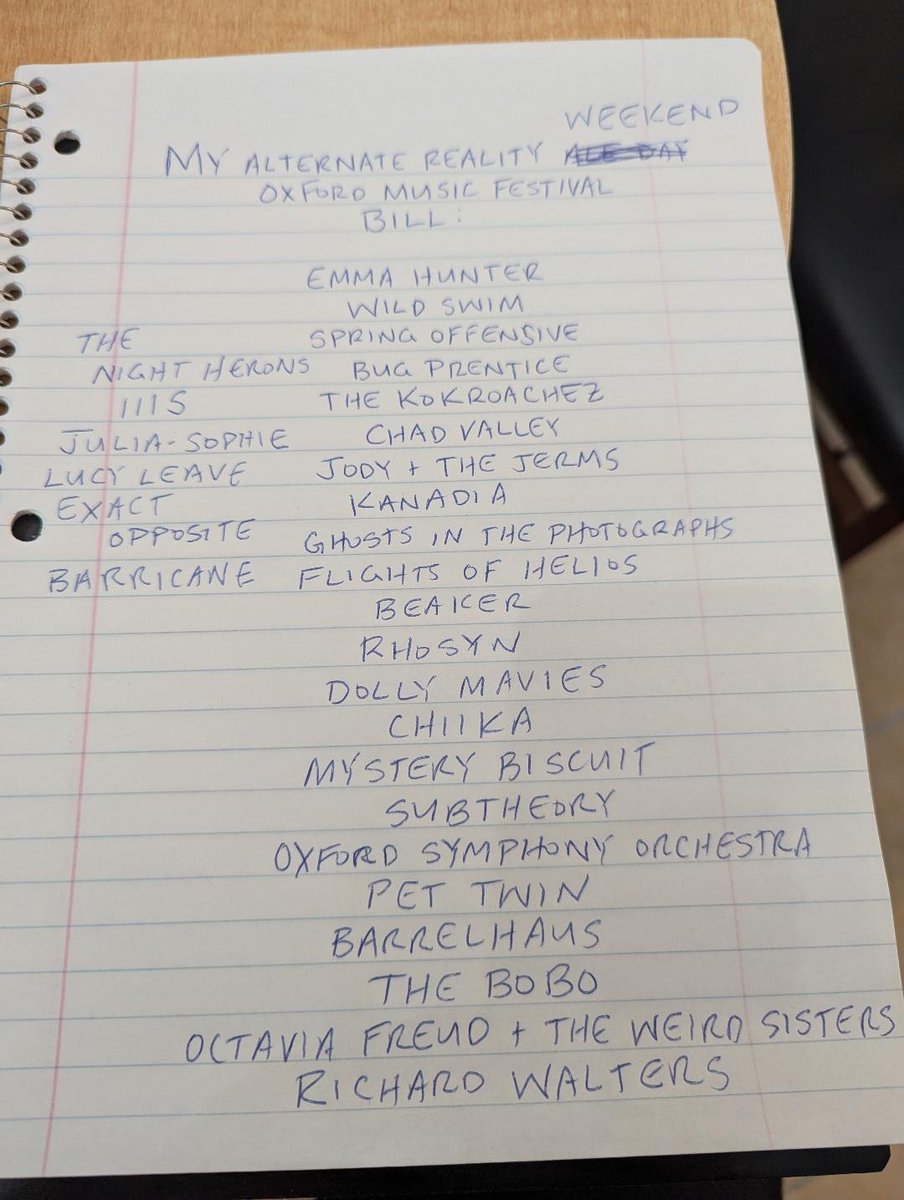 WEEKEND
MY ALTERNATE REALITY ALL DAY
OXFORD MUSIC FESTIVAL
BILL:
EMMA HUNTER
WILD SWIM
SPRING OFFENSIVE
BUG PRENTICE
THE KOKROACHEZ
CHAD VALLEY
JODY + THE JERMS
KANADIA
GHOSTS IN THE PHOTOGRAPHS
FLIGHTS OF HELIOS
BEAKER
RHOSYN
DOLLY MAVIES
CHIIKA
MYSTERY BISCUIT
SUBTHEORY
OXFORD SYMPHONY ORCHESTRA
PET TWIN
BARRELHAUS
THE BOBO
OCTAVIA FREUD + THE WEIRD SISTERS
RICHARD WALTERS
THE
NIGHT HERONS
IIIS
JULIA-SOPHIE
LUCY LEAVE
EXACT
OPPOSITE
BARRICANE